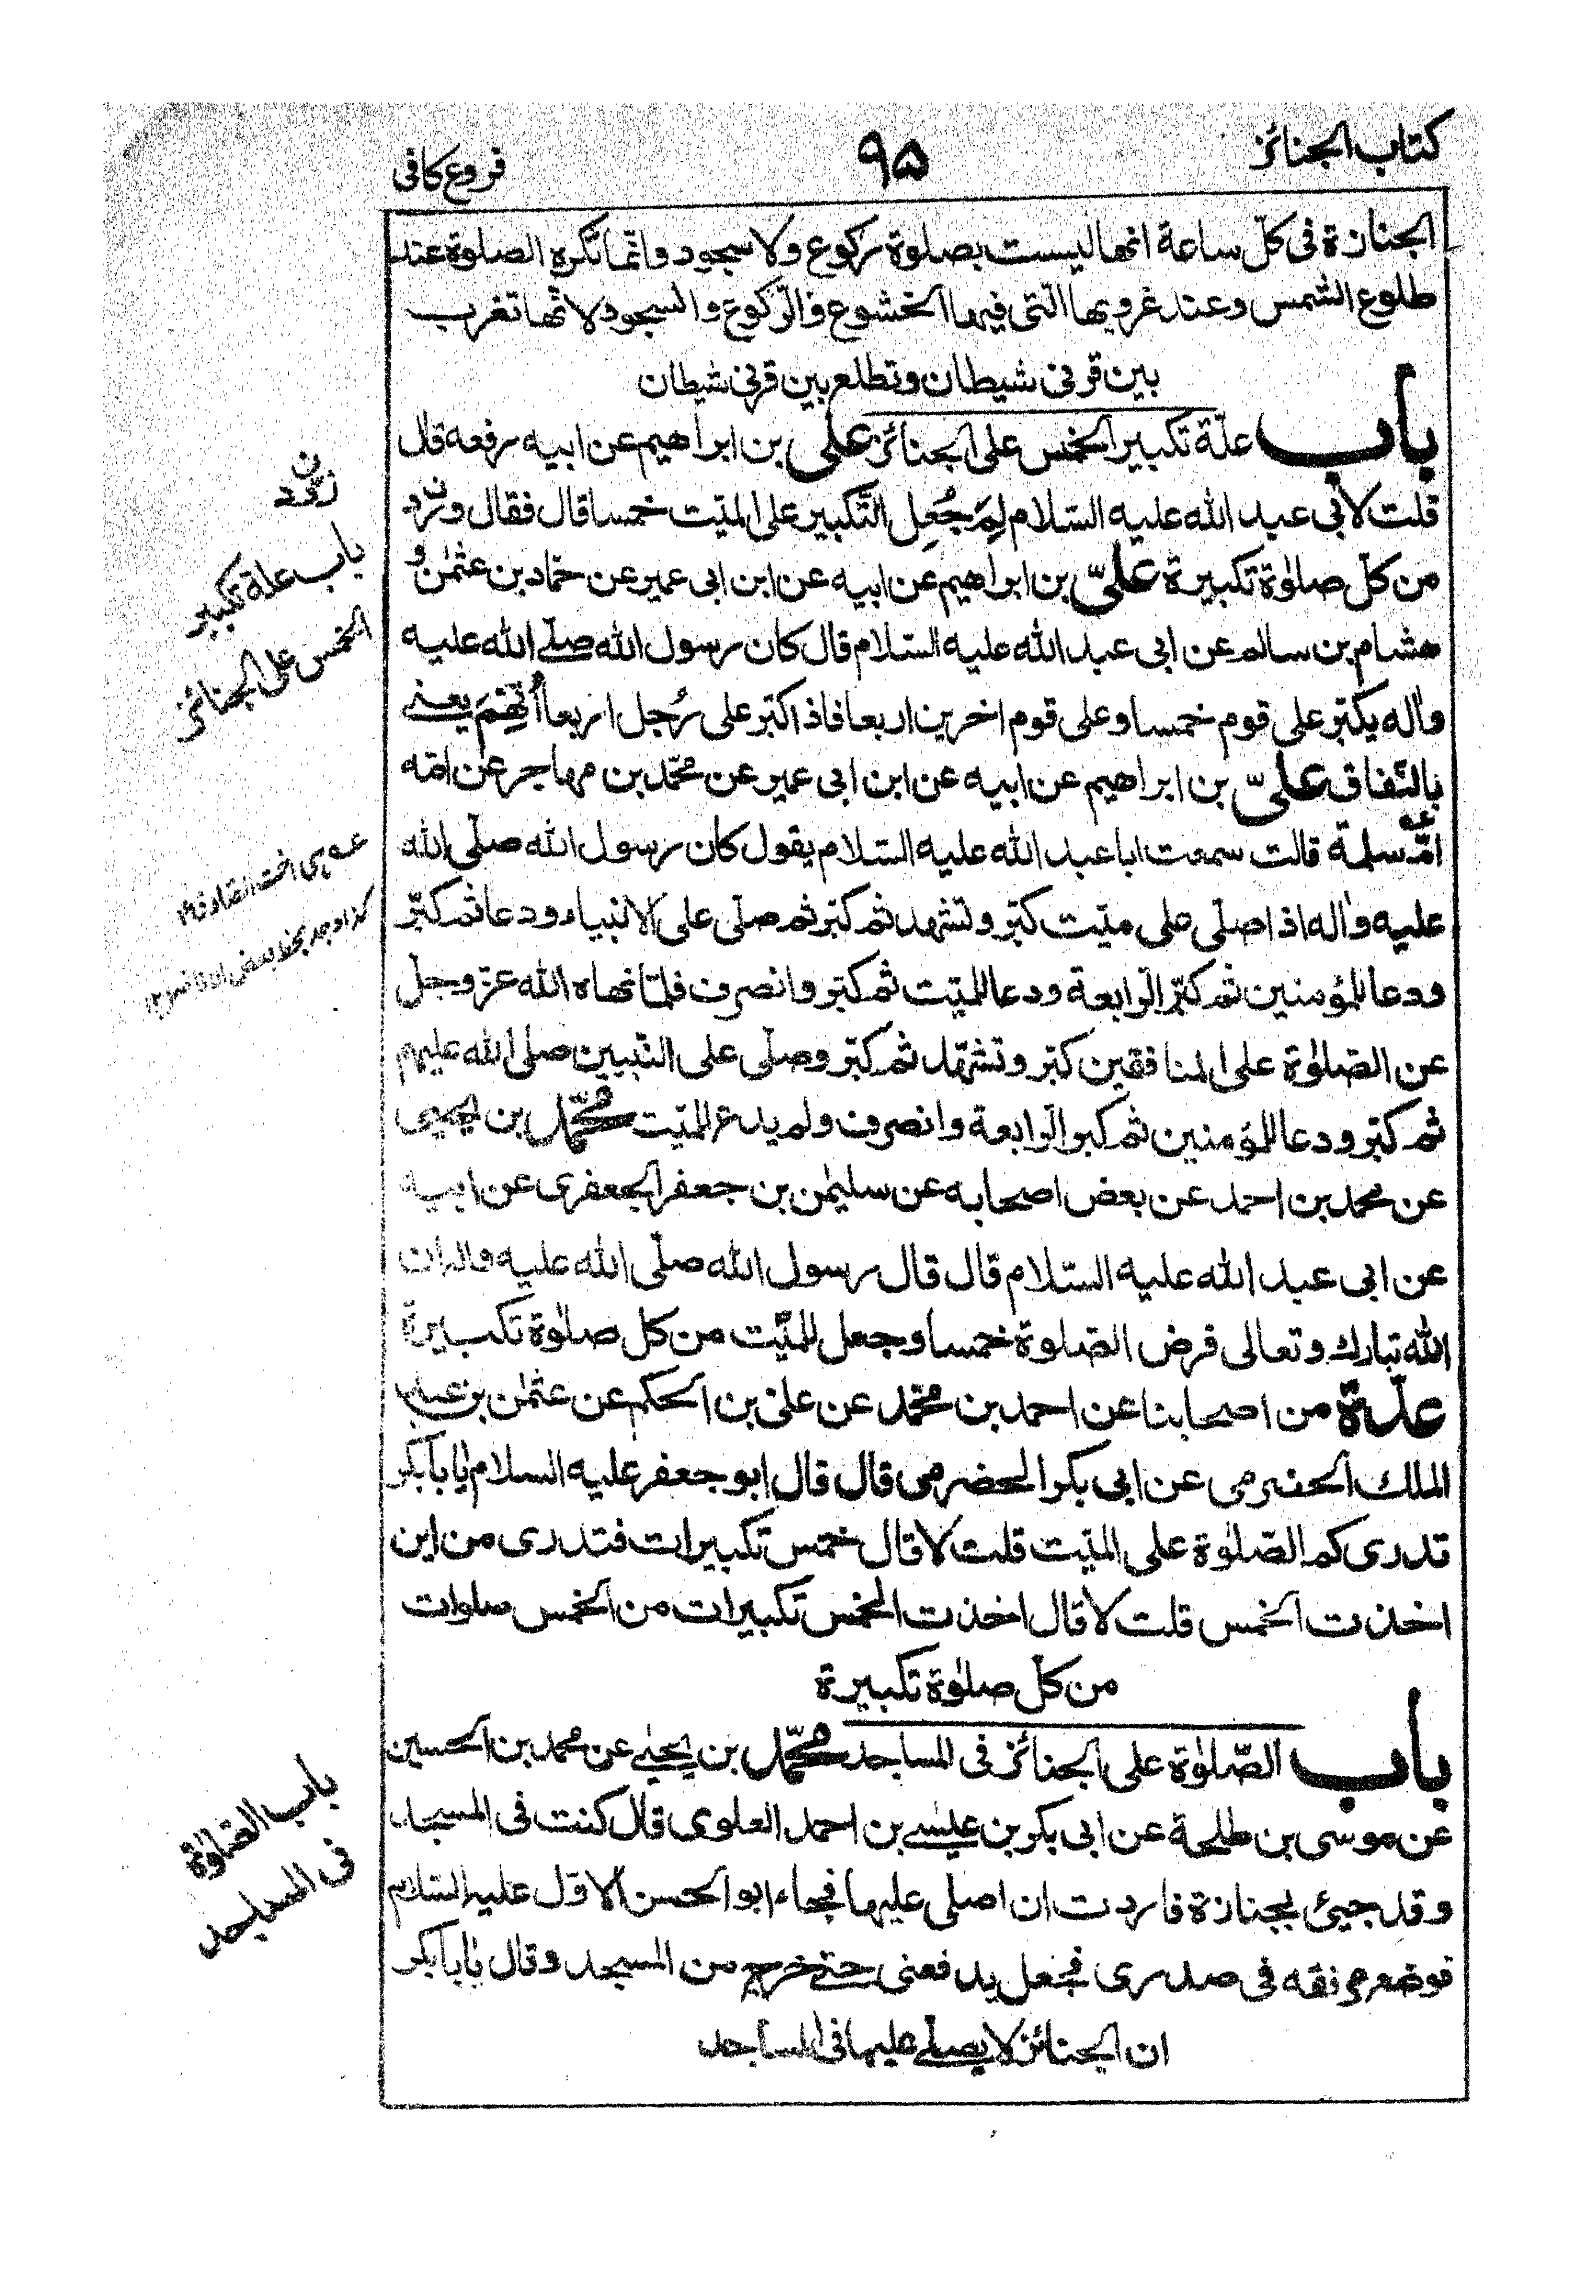 كتاب الجنائز
٩٥
فروع كافى
الجنازة فى كلّ ساعة انها ليست بصلوة ركوع ولا سجود وانّما تكره الصلوة عند
طلوع الشمس وعند غروبها الّتى فيها الخشوع والرّكوع والسجود لانّها تغرب
بين قرنى شيطان وتطلع بين قرنى شيطان
باب علّة تكبير الخمس على الجنائز على بن ابراهيم عن ابيه رفعه قال
قلت لابى عبد الله عليه السّلام لِمَ جُعِل التّكبير على الميّت خمسا قال فقال ورد
من كلّ صلوٰة تكبيرة علىّ بن ابراهيم عن ابيه عن ابن ابى عمير عن حمّاد بن عثمٰن و
هشام بن سالم عن ابى عبد الله عليه السّلام قال كان رسول الله صلّى الله عليه
واله يكبّر على قوم خمسا وعلى قوم اخرين اربعا فاذا كبّر على رُجل اربعا اُتّهِمَ يعنى
بالنّفاق علىّ بن ابراهيم عن ابيه عن ابن ابى عمير عن محمّد بن مهاجر عن امّه
امّ سلمة قالت سمعت ابا عبد الله عليه السّلام يقول كان رسول الله صلّى الله
عليه واله اذا صلّى على ميّت كبّر وتشهد ثم كبّر ثم صلّى على الانبياء ودعا ثم كبّر
ودعا للمؤمنين ثم كبّر الرّابعة ودعا للميّت ثم كبّر وانصرف فلمّا نهاه الله عزّ وجلّ
عن الصّلوٰة على المنافقين كبّر وتشهّد ثم كبّر وصلّى على النّبيين صلى الله عليهم
ثم كبّر ودعا للمؤمنين ثم كبر الرّابعة وانصرف ولم يدع للميّت محمّد بن يحيى
عن محمد بن احمد عن بعض اصحابه عن سليمٰن بن جعفر الجعفرى عن ابيه
عن ابى عبد الله عليه السّلام قال قال رسول الله صلّى الله عليه واله ان
الله تبارك وتعالى فرض الصّلوة خمسا وجعل للميّت من كل صلوٰة تكبيرة
عدّة من اصحابنا عن احمد بن محمّد عن على بن الحكم عن عثمٰن بن عبد
الملك الحضرمى عن ابى بكر الحضرمى قال قال ابو جعفر عليه السلام يا با بكر
تدرى كم الصّلوٰة على الميّت قلت لا قال خمس تكبيرات فتدرى من اين
اخذت الخمس قلت لا قال اخذت الخمس تكبيرات من الخمس صلوات
من كلّ صلوٰة تكبيرة
باب الصّلوٰة على الجنائز فى المساجد محمّد بن يحيٰى عن محمد بن الحسين
عن موسى بن طلحة عن ابى بكر بن عيسى بن احمد العلوى قال كنت فى المسجد
وقد جيئ بجنازة فاردت ان اصلى عليها فجاء ابو الحسن الاوّل عليه السّلام
فوضع مرفقه فى صدرى فجعل يدفعنى حتّى خرج من المسجد وقال يا با بكر
ان الجنائز لا يصلّى عليها فى المساجد
باب علة تكبير
الخمس على الجنائز
باب الصّلوٰة
فى المساجد